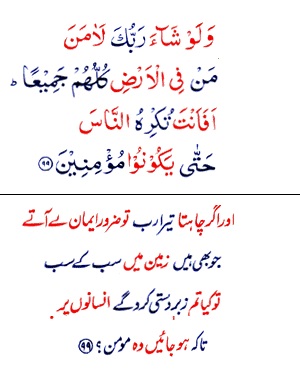 وَلَوْ شَآءَ رَبُّكَ لَاٰمَنَ
مَنْ فِی الْاَرْضِ كُلُّهُمْ جَمِیْعًا ؕ
اَفَاَنْتَ تُكْرِهُ النَّاسَ
حَتّٰی یَكُوْنُوْا مُؤْمِنِیْنَ ﴿۹۹﴾
اور اگر چاہتا تیرا رب تو ضرور ایمان لے آتے
جو بھی ہیں زمین میں سب کے سب
تو کیا تم زبردستی کرو گے انسانوں پر
تاکہ ہو جائیں وہ مومن؟ ﴿۹۹﴾